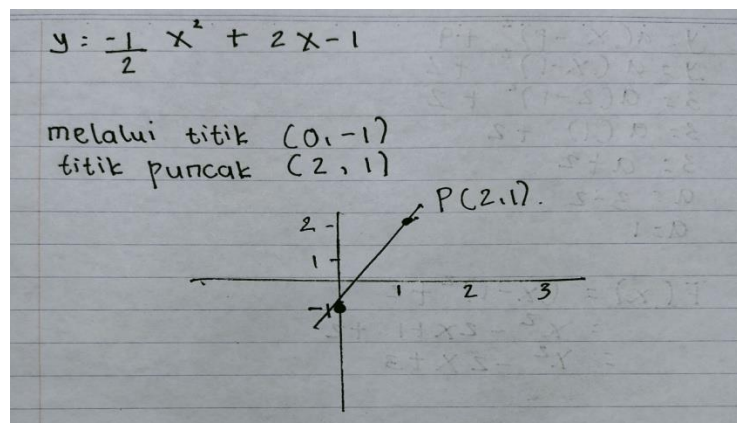 y = -1/2 x² + 2x - 1
melalui titik (0, -1)
titik puncak (2, 1)
P(2,1).
2
1
1 2 3
-1